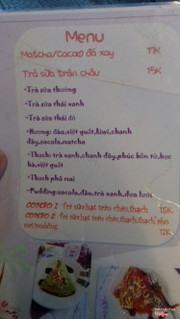 Menu
Matcha/Cacao đá xay 17K
Trà sữa trân châu 15K
•Trà sữa thường
•Trà sữa thái xanh
•Trà sữa thái đỏ
•Hương: dâu,việt quất,kiwi,chanh
dây,socola,matcha
•Thạch: trà xanh,chanh dây,phúc bồn tử,học
hà,việt quất
•Thạch phô mai
•Pudding:socola,dâu,trà xanh,dưa lưới
COMBO 1: Trà sữa,hạt trân châu,thạch 15K
COMBO 2: Trà sữa,hạt trân châu,thạch,
pudding 17K